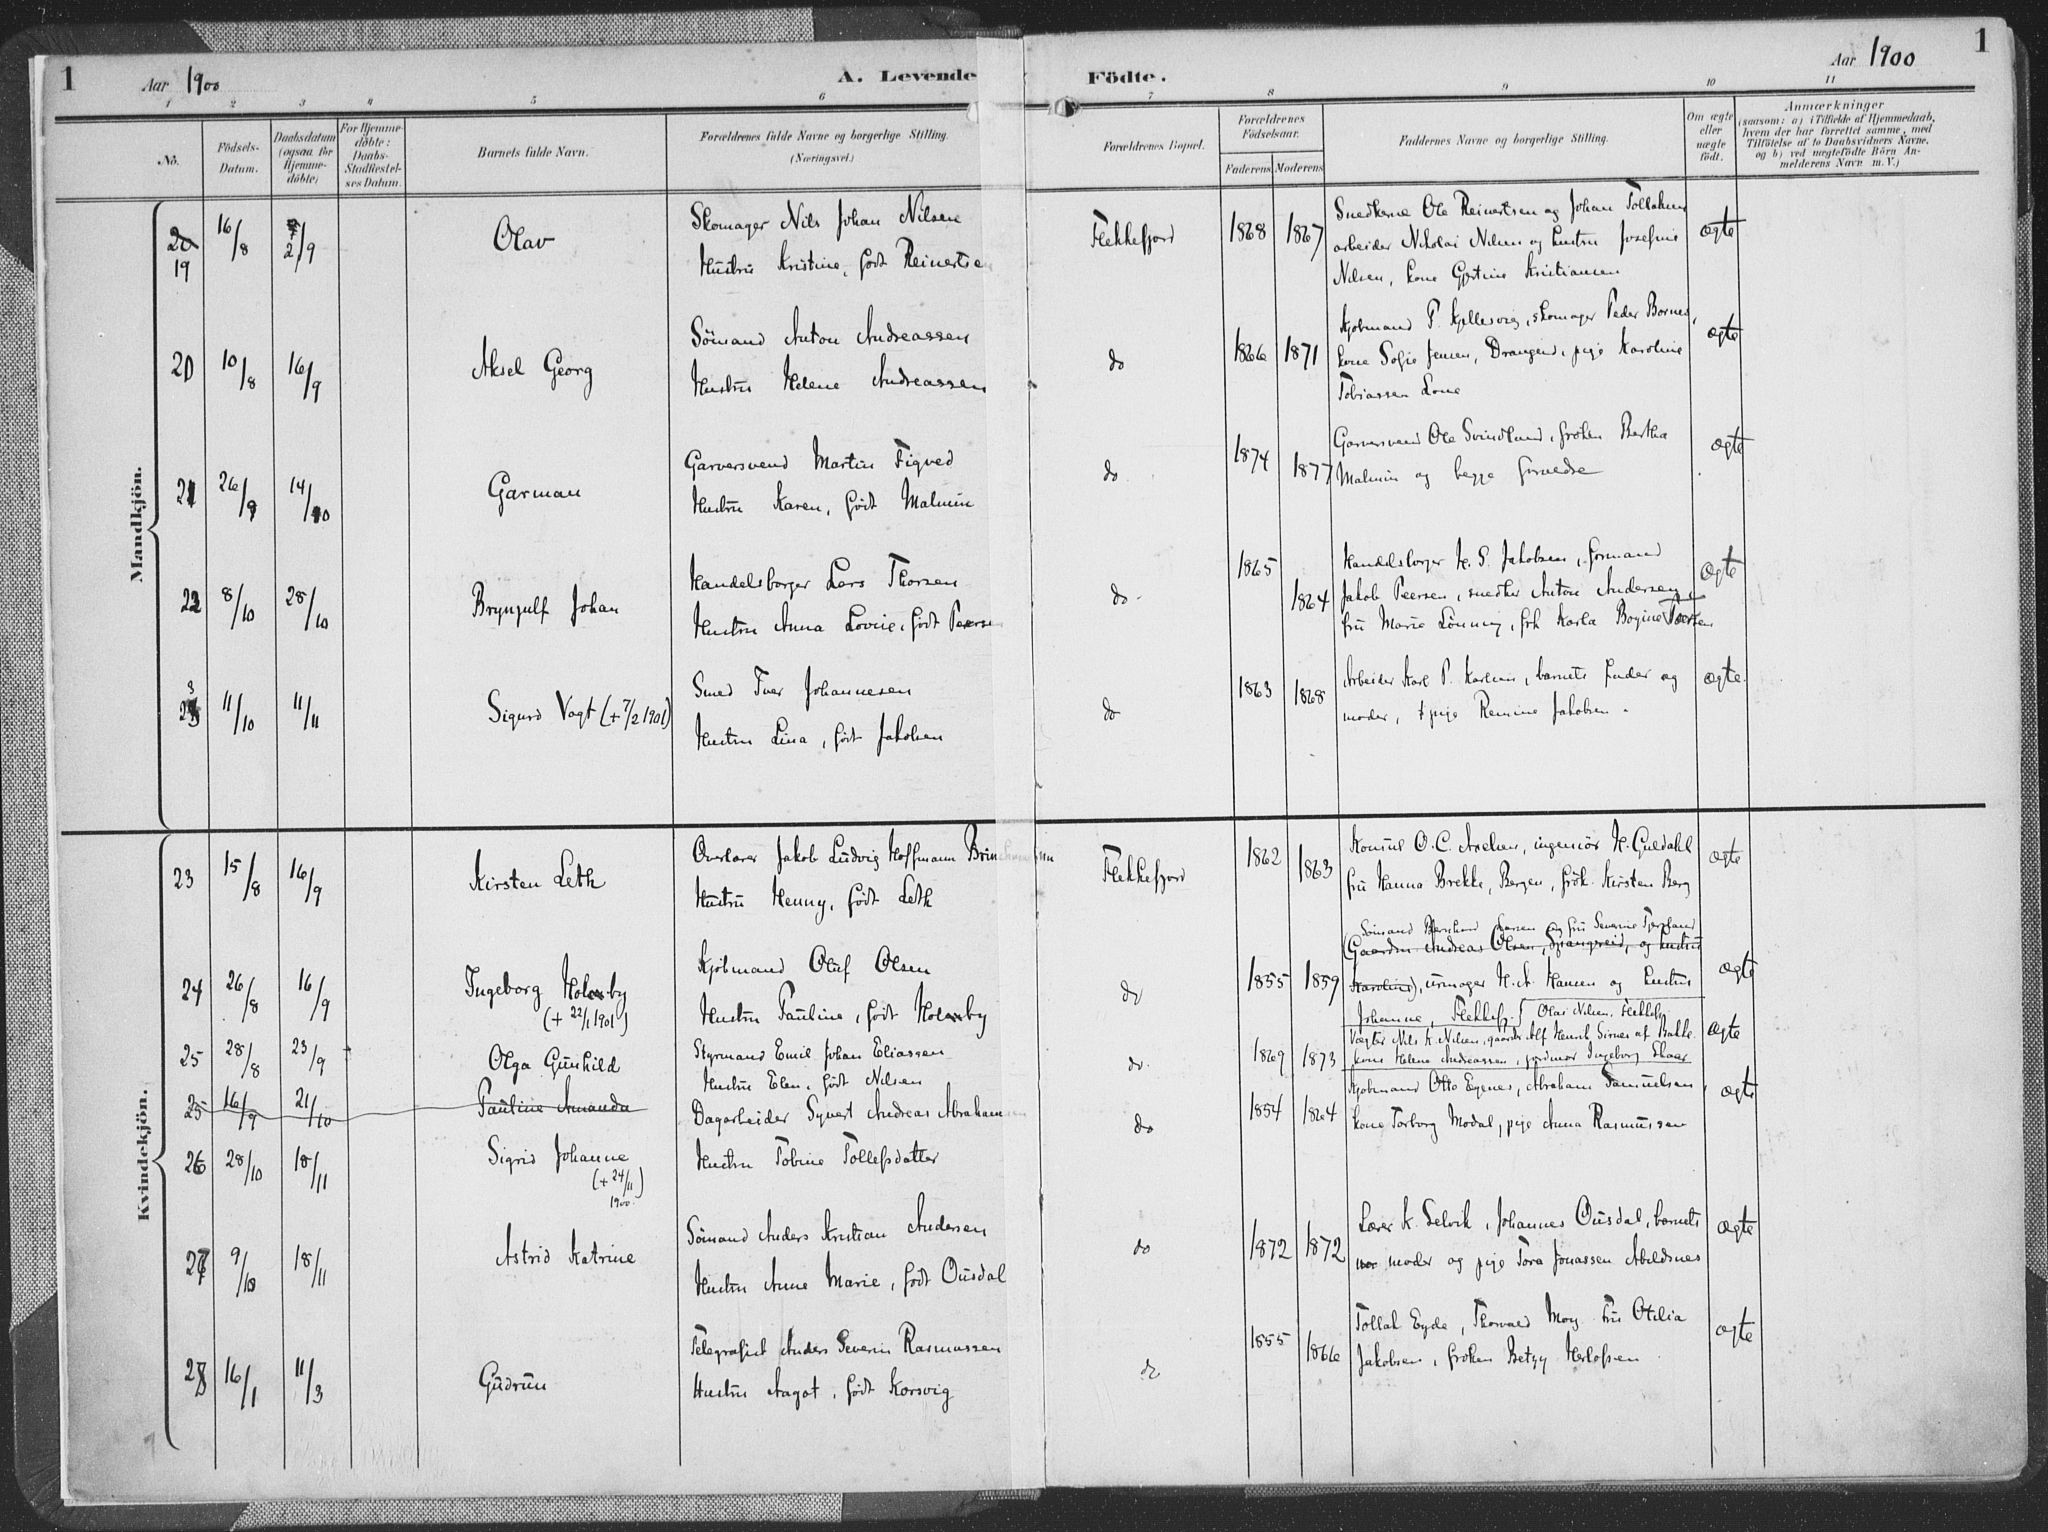 1
Aar 1900
A. Levende Födte.
Aar 1900
1
1 2 3 4 5 6 7 8 9 10 11
No.
Födsels-Datum.
Daabsdatum (ogsaa for Hjemme-döbte)
For Hjemme-döbte: Daabs-Stadfæstel-ses Datum.
Barnets fulde Navn.
Forældrenes fulde Navne og borgerlige Stilling. (Næringsvei.)
Forældrenes Bopæl.
Forældrenes Födselsaar.
Faderens Moderens
Faddernes Navne og borgerlige Stilling.
Om ægte eller uægte født.
Anmærkninger
(saasom: a) i Tilfælde af Hjemmedaab,
hvem der har forrettet samme, med
Tilföielse af to Daabsvidners Navne,
og b) ved uægtefödte Börn An-
melderens Navn m. V.)
Mandkjön.
20 19 16/8 2/9 Olav
Skomager Nils Johan Nilsen
Hustru Kristine, født Reinertsen
Flekkefjord 1868 1867
Snedkerne Ole Reinertsen og Johan Tollaksen
arbeider Nikolai Nilsen og hustru Josefine
Nilsen, kone Gjertine Kristiansen
ægte
20 10/8 16/9 Aksel Georg
Sömand Anton Andreassen
Hustru Helene Andreassen
do 1866 1871
Kjøbmand P. Kjellesvig, skomager Peder Bornes,
kone Sofie Jensen, Drangeid, pige Karoline
Tobiassen Lone
ægte
21 26/9 14/10 Garman
Garversvend Martin Figved
Hustru Karen, født Malmin
do 1874 1877
Garversvend Ole Svindland, frøken Bertha
Malmin og begge forældre
ægte
22 8/10 28/10 Brynjulf Johan
Handelsborger Lars Thorsen
Hustru Anna Lovise, født Peersen
do 1865 1864
Handelsborger H. S. Jakobsen, formand
Jakob Peersen, snedker Anton Andersen,
fru Marie Lönning, frk Karla Bogine Peersen
ægte
23 11/10 11/11 Sigurd Vogt (+ 7/2 1901)
Smed Iver Johannesen
Hustru Lina, født Jakobsen
do 1863 1868
Arbeider Karl P. Karlsen, barnets fader og
moder, pige Remine Jakobsen.
ægte.
Kvindekjön.
23 15/8 16/9 Kirsten Leth
Overlærer Jakob Ludvig Hoffmann
Hustru Henny, født Leth
Flekkefjord 1862 1863
Konsul O. C. Axelsen, ingeniør H. Guldahl
fru Hanna Brekke, Bergen, frök. Kirsten Berg
ægte
24 26/8 16/9 Ingeborg Holmby
(+ 22/1 1901)
Kjöbmand Oluf Olsen
Hustru Pauline, født Holmby
do 1855 1859
Sömand Bernhard Larsen og fru Severine Tjersland
(Gaardm. Andreas Olsen, Spangereid, og hustru
Karoline), urmager H. A. Hansen og hustru
Johanne, Flekkefj.
ægte
25 28/8 23/9 Olga Gunhild
Styrmand Emil Johan Eliassen
Hustru Elen, født Nilsen
do. 1869 1873
Olai Nilsen, Flekkefj
Vægter Nils K. Nilsen, gaardbr Alf Henrik Sirnes af Bakke
kone Helene Andreassen, jordmor Ingeborg Skaar
ægte
25 16/9 21/10 Pauline Amanda
26 28/10 18/11 Sigrid Johanne
(+ 24/11 1900.)
Dagarbeider Syvert Andreas Abrahamsen
Hustru Tobine Tollefsdatter
do 1854 1864
Kjøbmand Otto Egenes, Abraham Samuelsen,
kone Torborg Modal, pige Anna Rasmussen
ægte
27 9/10 18/11 Astrid Katrine
Sömand Anders Kristian Andersen
Hustru Anne Marie, født Ousdal
do 1872 1872
Lærer K. Selvik, Johannes Ousdal, barnets
moder og pige Tora Jonassen Abildsnes
ægte
28 16/1 11/3 Gudrun
Telegrafist Anders Severin Rasmussen
Hustru Aagot, født Korsvig
do 1855 1866
Tollak Eyde, Thorvald Moy, Fru Otilia
Jakobsen, frøken Betzy Herlofsen
ægte